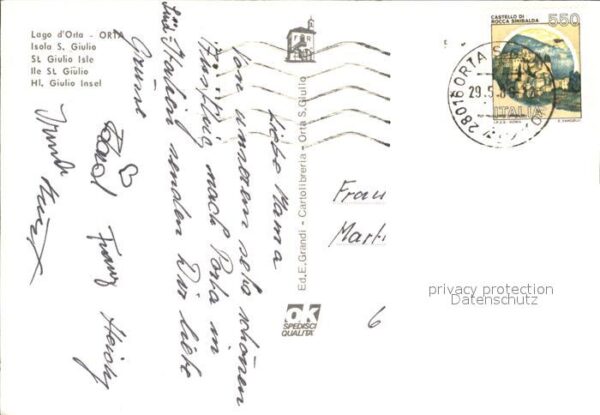 Lago d'Orta - ORTA
Isola S. Giulio
St. Giulio Isle
Ile St. Giulio
Hl. Giulio Insel
Liebe Mama
Von unserem sehr schönen
Ausflug nach Porta in
Süd-Italien senden Dir liebe
Grüsse
Franz Heidy
Ed. E. Grandi - Cartolibreria - Orta S. Giulio
ok
SPEDISCI
QUALITA'
CASTELLO DI
ROCCA SINIBALDA
550
ITALIA
28016 ORTA S.
29.5.
Frau
Marti
6
privacy protection
Datenschutz